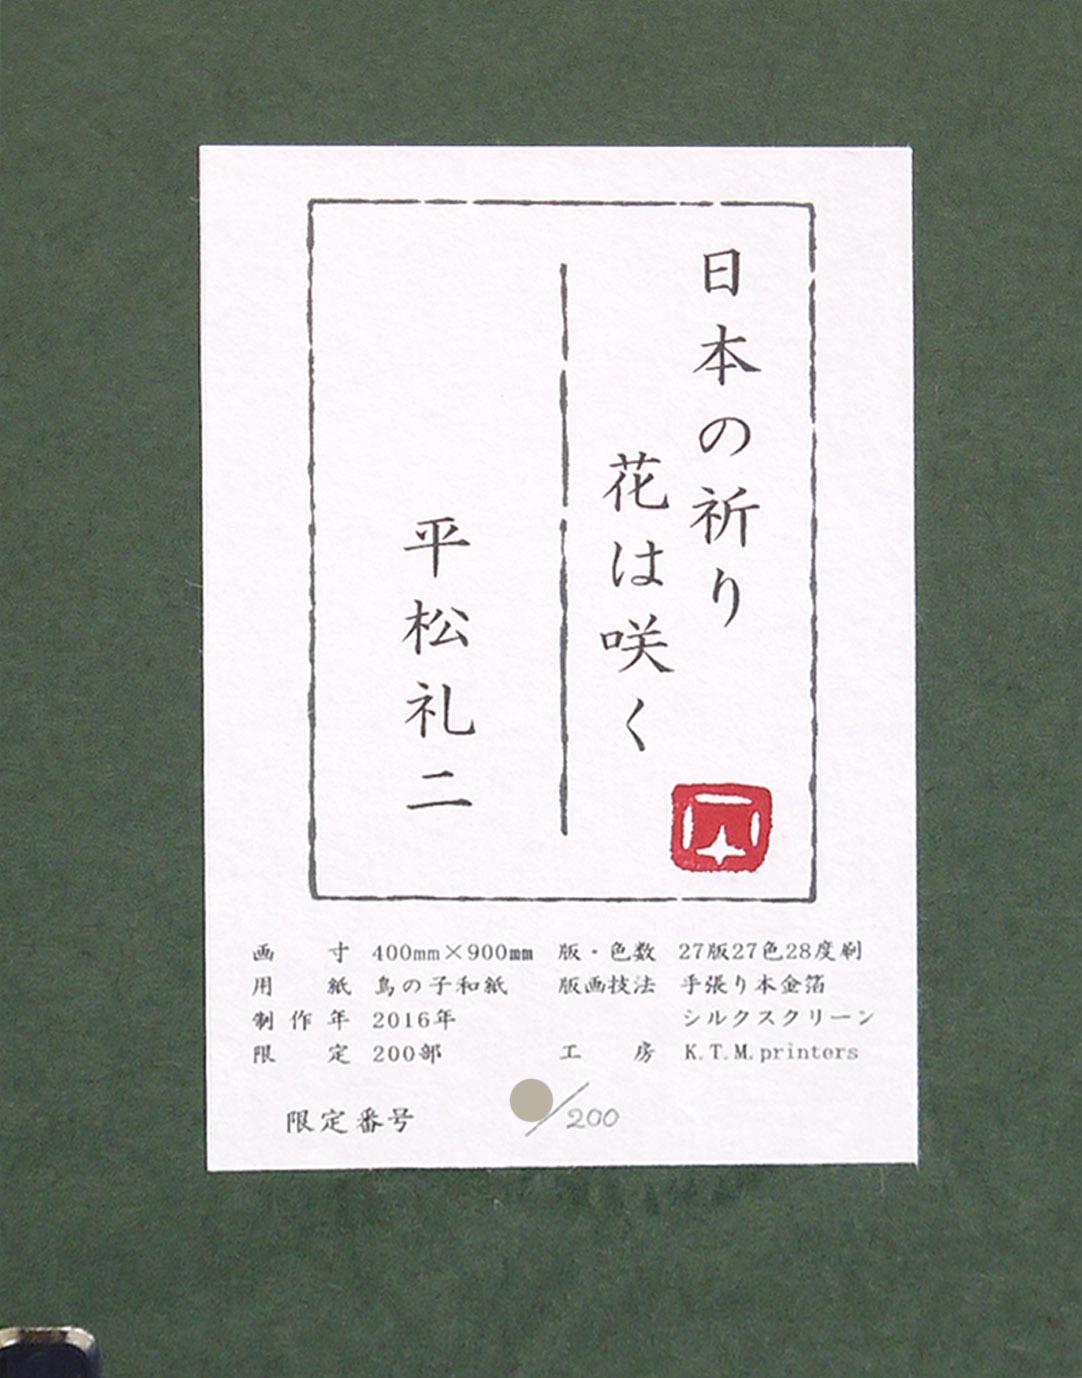 日本の祈り
花は咲く
平松礼二
画寸 400mm×900mm 版・色数 27版27色28度刷
用紙 鳥の子和紙 版画技法 手張り本金箔
制作年 2016年 シルクスクリーン
限定 200部 工房 K.T.M.printers
限定番号 /200